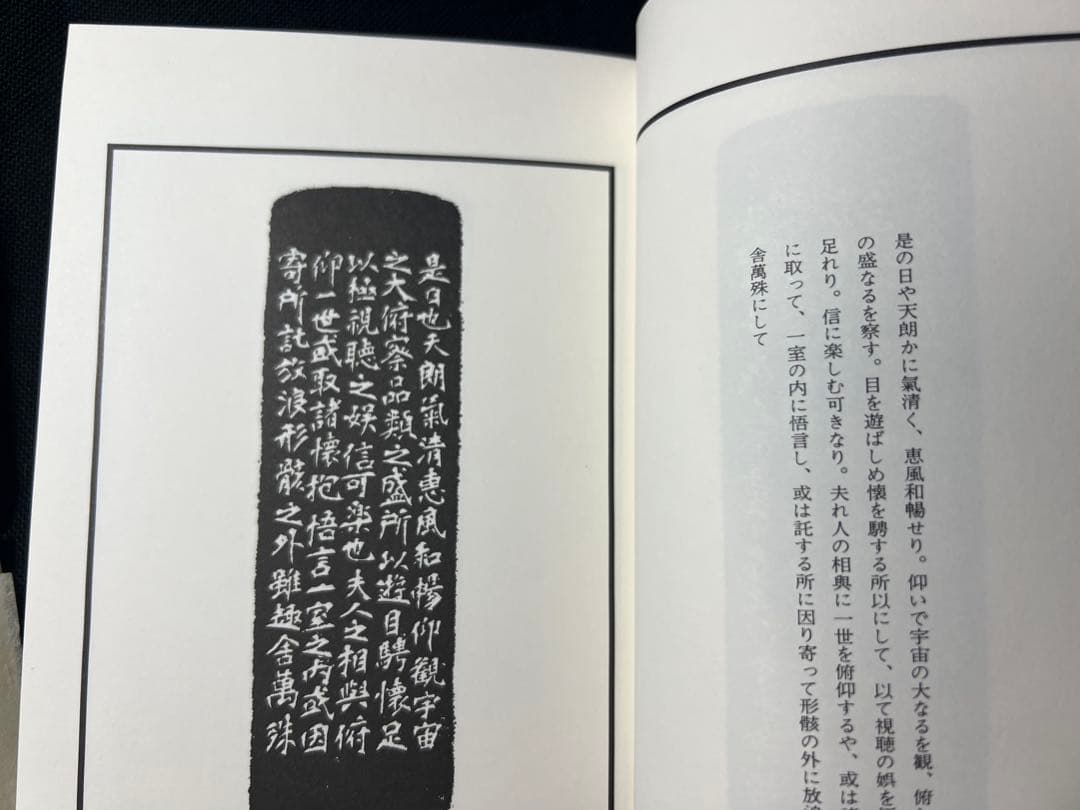 是の日や天朗かに氣清く、恵風和暢せり。仰いで宇宙の大なるを観、俯
の盛なるを察す。目を遊ばしめ懐を騁する所以にして、以て視聴の娯を
足れり。信に楽しむ可きなり。夫れ人の相與に一世を俯仰するや、或は
に取って、一室の内に悟言し、或は託する所に因り寄って形骸の外に放
舎萬殊にして
是日也天朗氣清惠風和暢仰觀宇宙
之大俯察品類之盛所以遊目騁懷足
以極視聽之娯信可樂也夫人之相與俯
仰一世或取諸懷抱悟言一室之内或因
寄所託放浪形骸之外雖趣舍萬殊